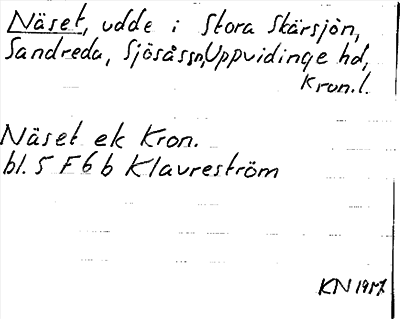 Näset, udde i Stora Skärsjön,
Sandreda, Sjösås sn, Uppvidinge hd,
Kron.l.
Näset ek Kron.
bl. 5 F 6 b Klavreström
KN